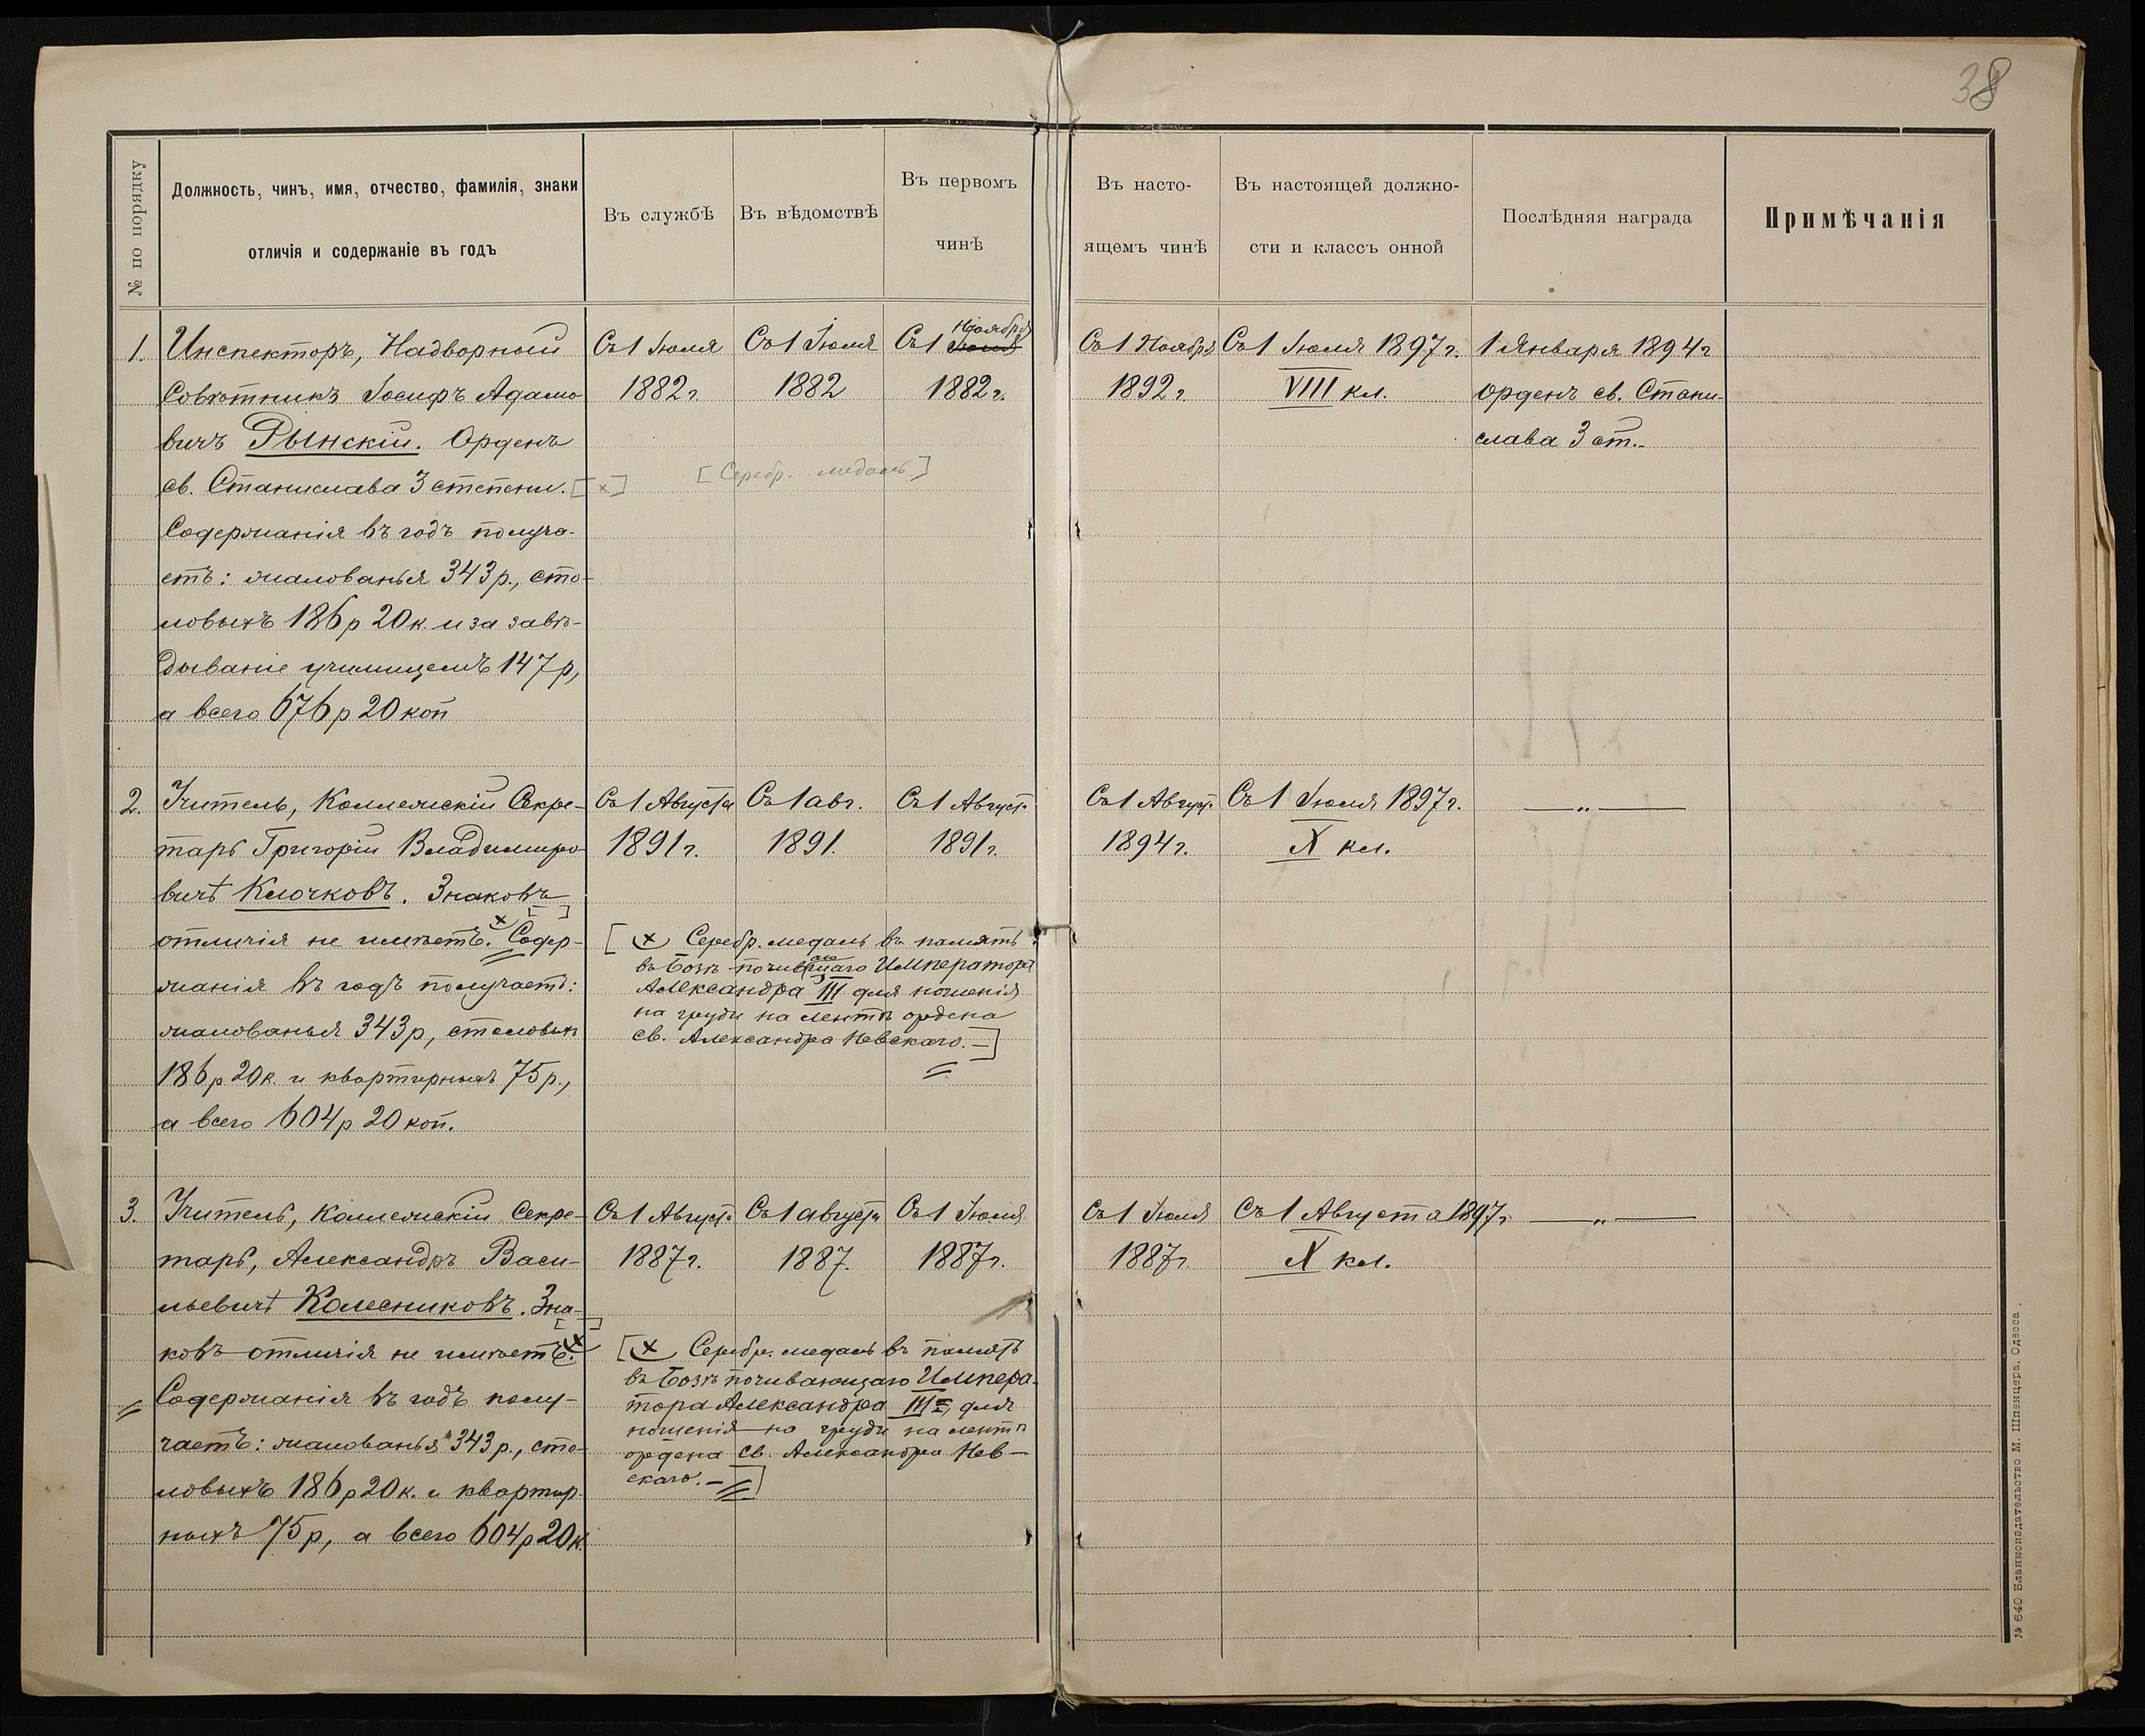 38
№ по порядку
Должность, чинъ, имя, отчество, фамилія, знаки
отличія и содержаніе въ годъ
Въ службѣ
Въ вѣдомствѣ
Въ первомъ
чинѣ
Въ насто-
ящемъ чинѣ
Въ настоящей должно-
сти и классъ онной
Послѣдняя награда
Примѣчанія
1.
Инспекторъ, Надворный
Совѣтникъ Іосифъ Адамо
вичъ Рынскій. Орденъ
св. Станислава 3 степени. [×]
Содержанія въ годъ получа-
етъ: жалованья 343 р., сто-
ловыхъ 186 р 20 к. и за завѣ-
дываніе училищемъ 147 р,
а всего 676 р 20 коп
Съ 1 Іюля
1882 г.
Съ 1 Іюля
1882
Ноября
Съ 1 Іюля
1882 г.
[Серебр. медаль]
Съ 1 Ноября
1892 г.
Съ 1 Іюля 1897 г.
VIII кл.
1 Января 1894 г
орденъ св. Стани-
слава 3 ст.
2.
Учитель, Коллежскій Секре-
тарь Григорій Владиміро
вичъ Клочковъ. Знаковъ
отличія не имѣетъ. × Содер-
жанія въ годъ получаетъ:
жалованья 343 р, столовыхъ
186 р 20 к. и квартирныхъ 75 р.,
а всего 604 р 20 коп.
Съ 1 Августа
1891 г.
Съ 1 авг.
1891.
Съ 1 Август.
1891 г.
[× Серебр. медаль въ память
въ Бозѣ почившаго Императора
Александра III для ношенія
на груди на лентѣ ордена
св. Александра Невскаго. —]
Съ 1 Август.
1894 г.
Съ 1 Іюля 1897 г.
X кл.
— „ —
3.
Учитель, Коллежскій Секре-
тарь, Александръ Васи-
льевичъ Колесниковъ. Зна-
ковъ отличія не имѣетъ. ×
Содержанія въ годъ полу-
чаетъ: жалованья 343 р., сто-
ловыхъ 186 р 20 к. и квартир-
ныхъ 75 р, а всего 604 р 20 к.
Съ 1 Август.
1887 г.
Съ 1 августа
1887.
Съ 1 Іюля
1887 г.
[× Серебр. медаль въ память
въ Бозѣ почивающаго Импера-
тора Александра III, для
ношенія на груди на лентѣ
ордена св. Александра Нев-
скаго. —]
Съ 1 Іюля
1887 г.
Съ 1 Августа 1897 г.
X кл.
— „ —
№ 640 Бланкоиздательство М. Шпенцера, Одесса.